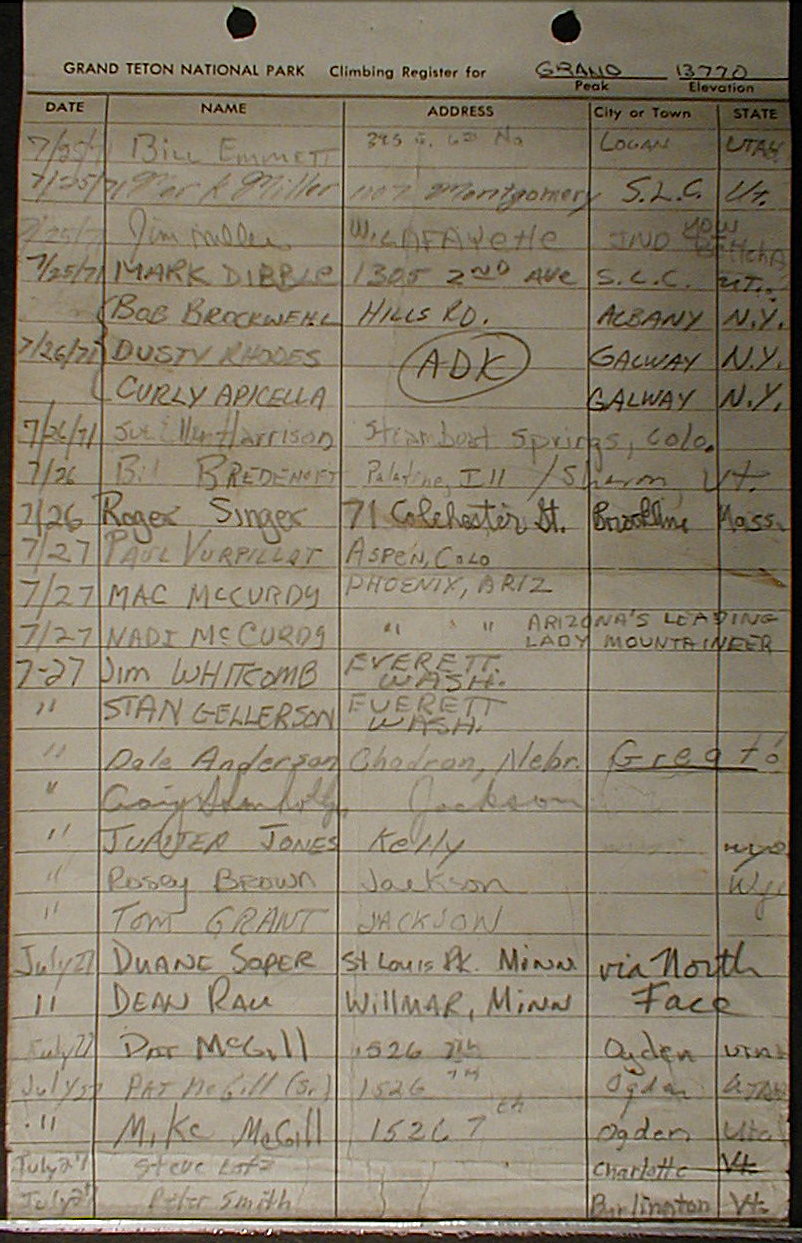 GRAND TETON NATIONAL PARK Climbing Register for GRAND 13770
Peak Elevation
DATE NAME ADDRESS City or Town STATE
7/25/71 BILL EMMETT 395 LOGAN UTAH
7/25/71 Miller Montgomery S.L.C. Ut.
7/25/71 Jim Miller W. LAFAYETTE IND
7/25/71 MARK DIBBLE 1305 2ND AVE S.L.C. UT.
BOB BROCKWEHL HILLS RD. ALBANY N.Y.
7/26/71 DUSTY RHODES ADK GALWAY N.Y.
CURLY APICELLA GALWAY N.Y.
7/26/71 Harrison Steamboat Springs, Colo.
7/26 Bill BREDEHOFT Palatine, Ill / Sharon, Vt.
7/26 Roger Singer 71 Colchester St. Brookline Mass.
7/27 PAUL VURPILLAT ASPEN, COLO
7/27 MAC McCURDY PHOENIX, ARIZ
7/27 NADI McCURDY " " " ARIZONA'S LEADING
LADY MOUNTAINEER
7-27 Jim WHITCOMB EVERETT.
WASH.
" STAN GELLERSON EVERETT
WASH.
" Dale Anderson Chadron, Nebr. Great
" Craig Jackson
" JUPITER JONES Kelly wyo
" ROSEY BROWN Jackson Wy
" TOM GRANT JACKSON
July 27 DUANE SOPER St Louis Pk. MINN via North
" DEAN RAU WILLMAR, MINN Face
July 27 PAT McGill 1526 7th Ogden Utah
July 27 PAT McGill (Sr) 1526 7TH Ogden UTAH
" Mike McGill 1526 7th Ogden Utah
July 27 Steve Charlotte Vt.
July 27 Peter Smith Burlington Vt.